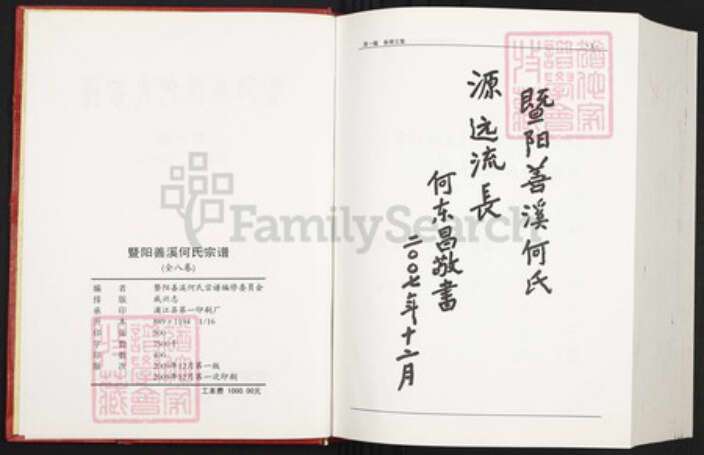 暨阳善溪何氏宗谱
(全八卷)
编 者 暨阳善溪何氏宗谱编修委员会
排 版 戚兴志
承 印 浦江县第一印刷厂
开 本 889×1194 1/16
印 张 500
字 数 7500千
印 数 400
版 次 2009年12月第一版
2009年12月第一次印刷
工本费 1000.00元
FamilySearch
暨阳善溪何氏
源远流長
何东昌敬書
二〇〇七年十二月